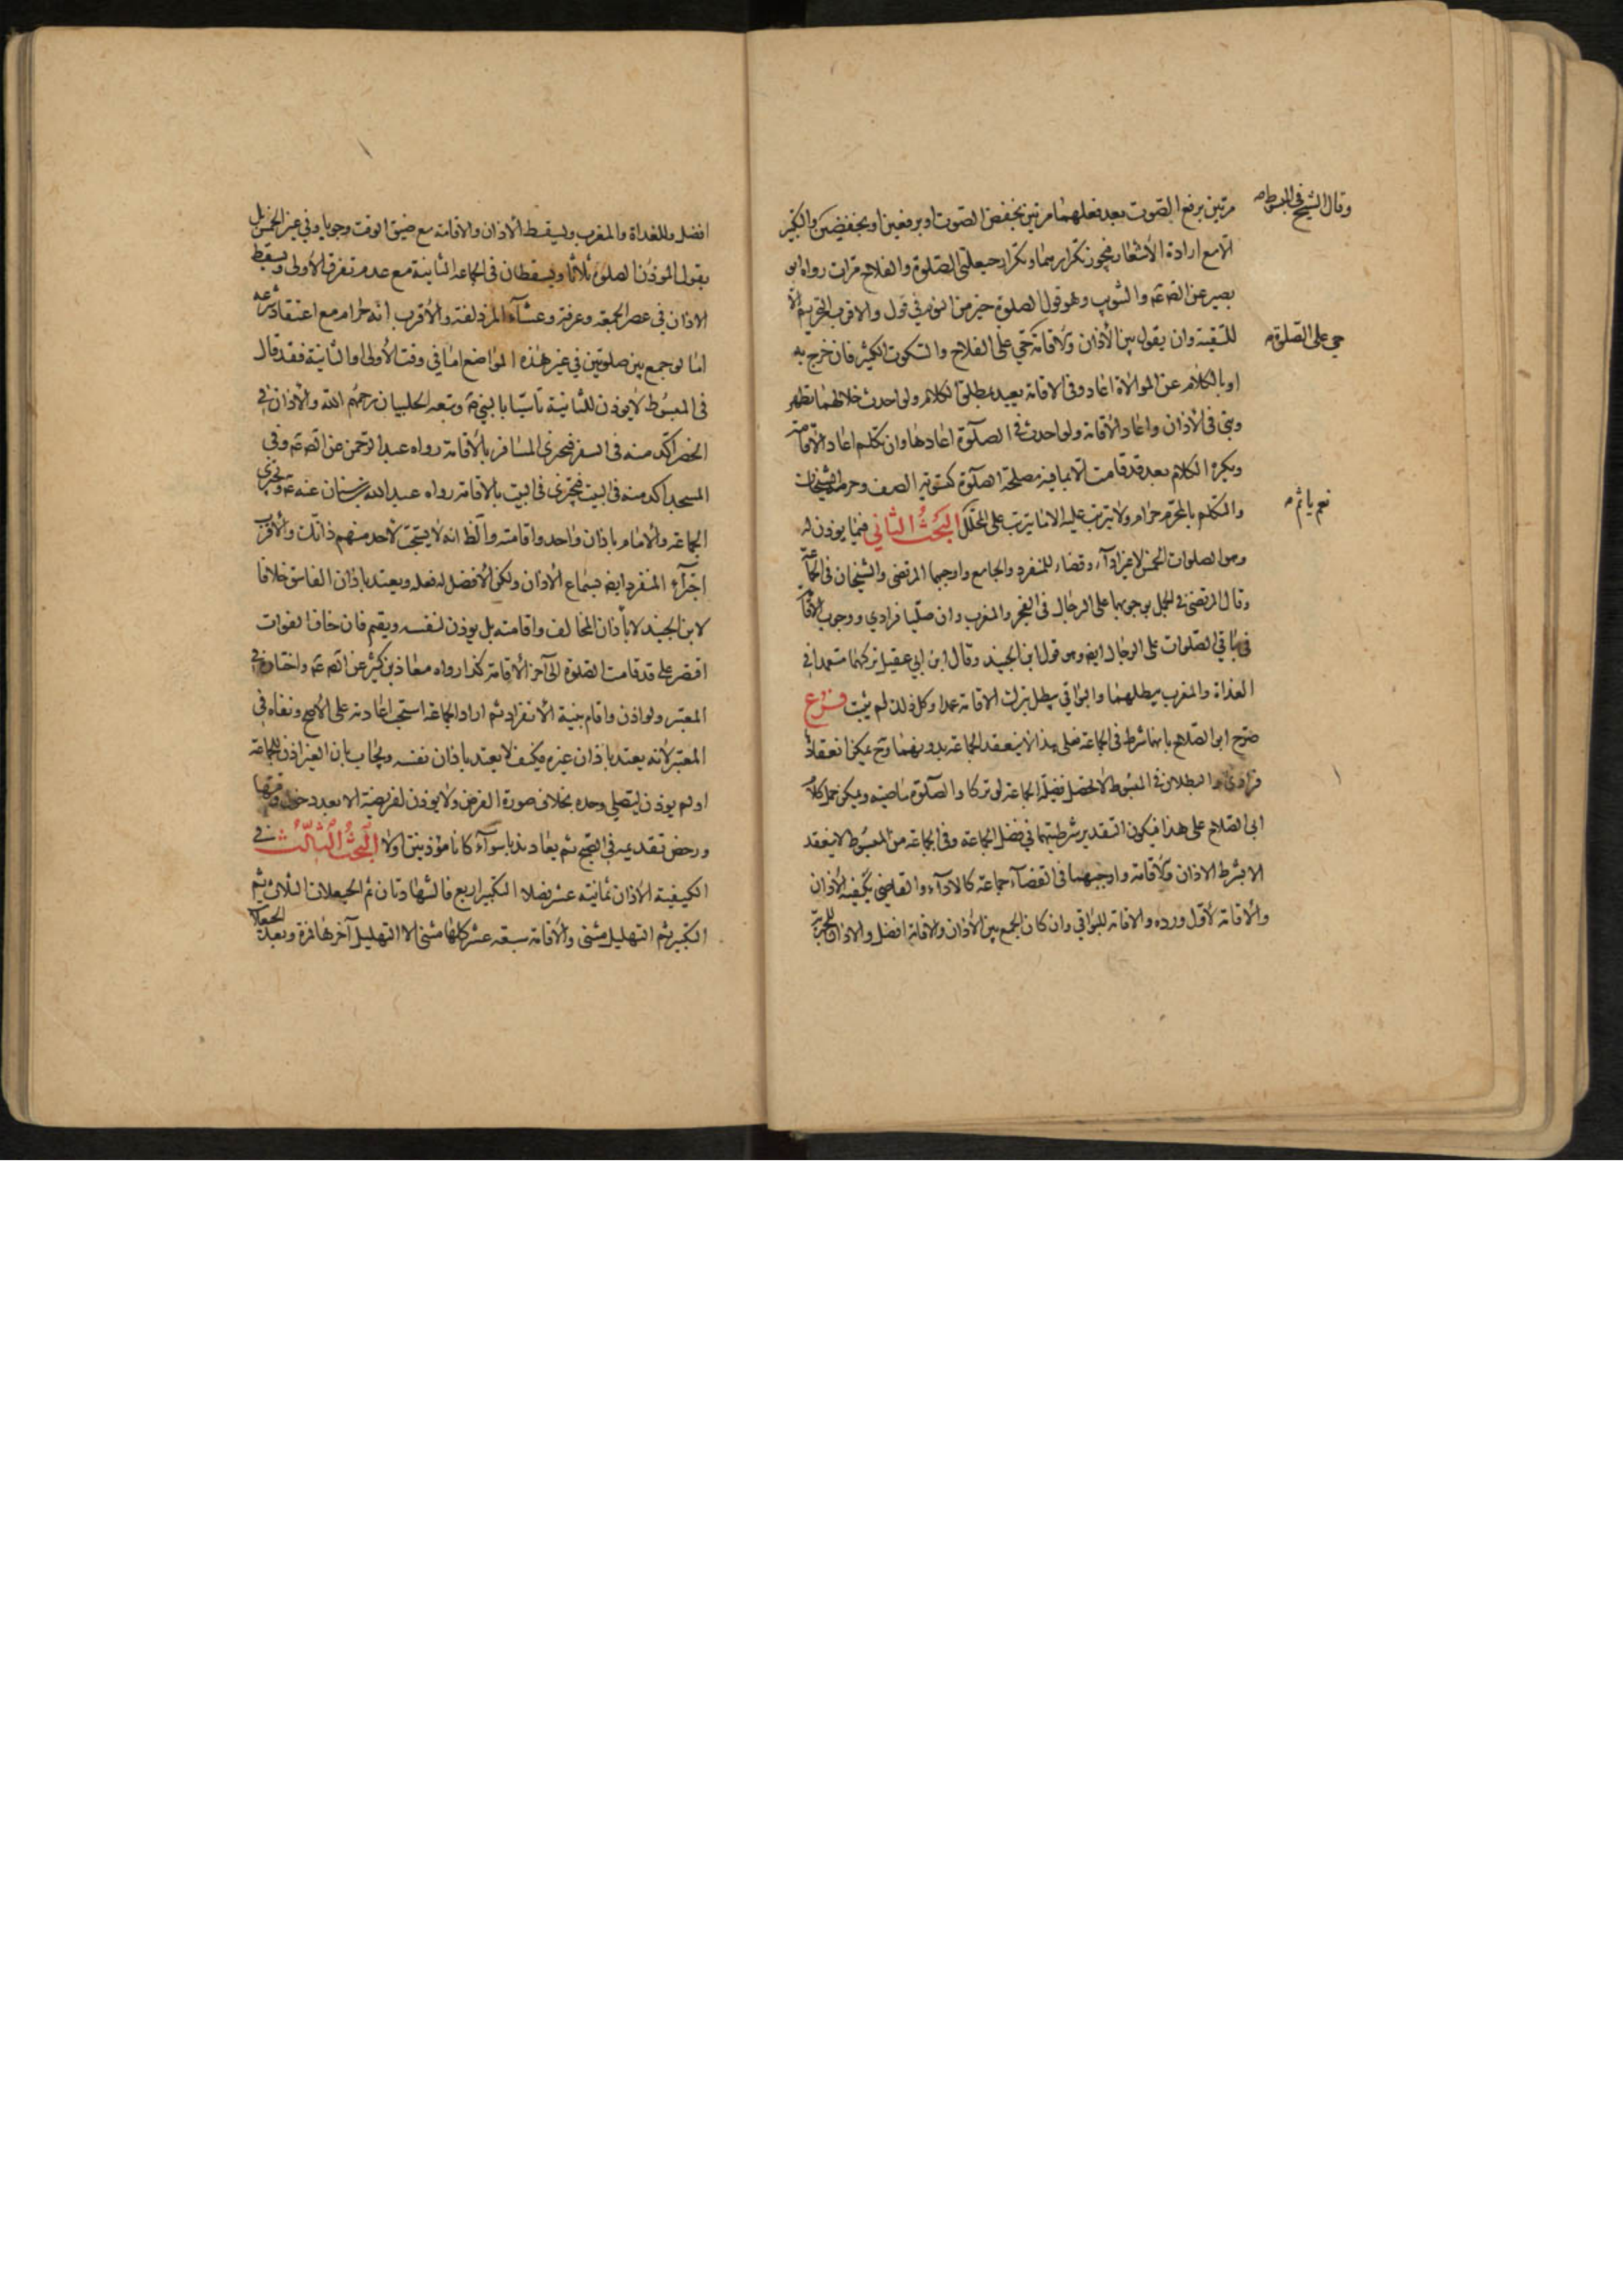 مرتين برفع الصوت بعد فعلهما مرتين بخفض الصوت او برفعين او بخفضين والتكبير
الا مع ارادة الاشعار فيجوز تكرارهما وتكرار حيعلتي الصلوة والفلاح مرات رواه ابو
بصير عن الصم عم والتثويب وهو قول الصلوة خير من النوم في قول والاقرب التحريم الا
للتقية وان يقول بين الأذان والاقامة حي على الفلاح والسكوت الكثير فان خرج به
او بالكلام عن الموالاة اعاد وفى الاقامة يعيد بمطلق الكلام ولو احدث خلالهما تطهر
وبنى فى الأذان واعاد الأقامة ولو احدث في الصلوة اعادها وان تكلم اعاد الاقامة
ويكره الكلام بعد قد قامت الا بما فيه مصلحة الصلوة كتسوية الصف وحرمه الشيخان
والمتكلم بالمحرم حرام ولا يترتب عليه الا ما يترتب على المحلل البحث الثاني فيما يوذن له
وهو الصلوات الخمس لا غير اداء وقضاء للمنفرد والجامع واوجبهما المرتضى والشيخان فى الجماعة
وقال المرتضى في الجمل بوجوبهما على الرجال فى الفجر والمغرب وان صليا فرادي ووجوب الاقامة
في باقي الصلوات على الرجال ايضا وهو قول ابن الجنيد وقال ابن ابي عقيل تركهما متعمدا في
الغداة والمغرب يبطلهما والبواقي يبطل بترك الاقامة عمدا وكل ذلك لم يثبت فرع
صرح ابو الصلاح بانهما شرط فى الجماعة فعلى هذا لا ينعقد الجماعة بدونهما وح يمكن انعقاد
فرادى والبطلان في المبسوط لا تحصل فضيلة الجماعة لو تركا والصلوة ماضية ويمكن حمل كلام
ابى الصلاح على هذا فيكون التقدير شرطيتهما في فضل الجماعة وفى الجماعة من المبسوط لا ينعقد
الا بشرط الاذان والاقامة واوجبهما فى القضاء جماعة كالاداء والقاضي يكفيه الأذان
والأقامة لأول ورده والاقامة للبواقي وان كان الجمع بين الأذان والاقامة افضل والاذان للجهرية
وقال الشيخ في المبسوط
حي على الصلوة
نعم ياثم
افضل وللغداة والمغرب ويسقط الأذان والاقامة مع ضيق الوقت وجوبا وفي غير الخمس بل
يقول المؤذن الصلوة ثلاثا ويسقطان فى الجماعة الثانية مع عدم تفرق الأولى ويسقط
الاذان في عصر الجمعة وعرفة وعشاء المزدلفة والأقرب انه حرام مع اعتقاد شرعه
اما لو جمع بين صلوتين في غير هذه المواضع اما في وقت الأولى او الثانية فقد قال
فى المبسوط لا يوذن للثانية تأسيا بالنبي ص وتبعه الحلبيان رحمهم الله والأذان في
الحضر آكد منه فى السفر فيجزى المسافر بالأقامة رواه عبد الرحمن عن الصم عم وفى
المسجد اكد منه فى البيت فيجزى فى البيت بالاقامة رواه عبد الله بن سنان عنه عم ويجزى
الجماعة والامام باذان واحد واقامته والظ انه لا يستحب لأحد منهم ذانك والأقرب
اجزاء المنفرد ايضا بسماع الأذان ولكن الأفضل له فعله ويعتد باذان الفاسق خلافا
لابن الجنيد لا باذان المخالف واقامته بل يوذن لنفسه ويقيم فان خاف الفوات
اقتصر على قد قامت الصلوة الى آخر الأقامة كذا رواه معاذ بن كثير عن الصم عم واختاره في
المعتبر ولو اذن واقام بنية الأنفراد ثم اراد الجماعة استحب اعادته على الأصح ونفاه فى
المعتبر لأنه يعتد باذان غيره فكيف لا يعتد باذان نفسه ويجاب بان الغير اذن للجماعة
او لم يوذن ليصلي وحده بخلاف صورة الفرض ولا يوذن لفريضة الا بعد دخول وقتها
ورخص تقديمه فى الصبح ثم يعاد ندبا سوآء كانا مؤذنين او لا البحث الثالث في
الكيفية الأذان ثمانية عشر فصلا التكبير اربع فالشهادتان ثم الحيعلات الثلاث ثم
التكبير ثم التهليل مثنى والأقامة سبعة عشر كلها مثنى الا التهليل آخرها فمرة وبعد الحيعلات